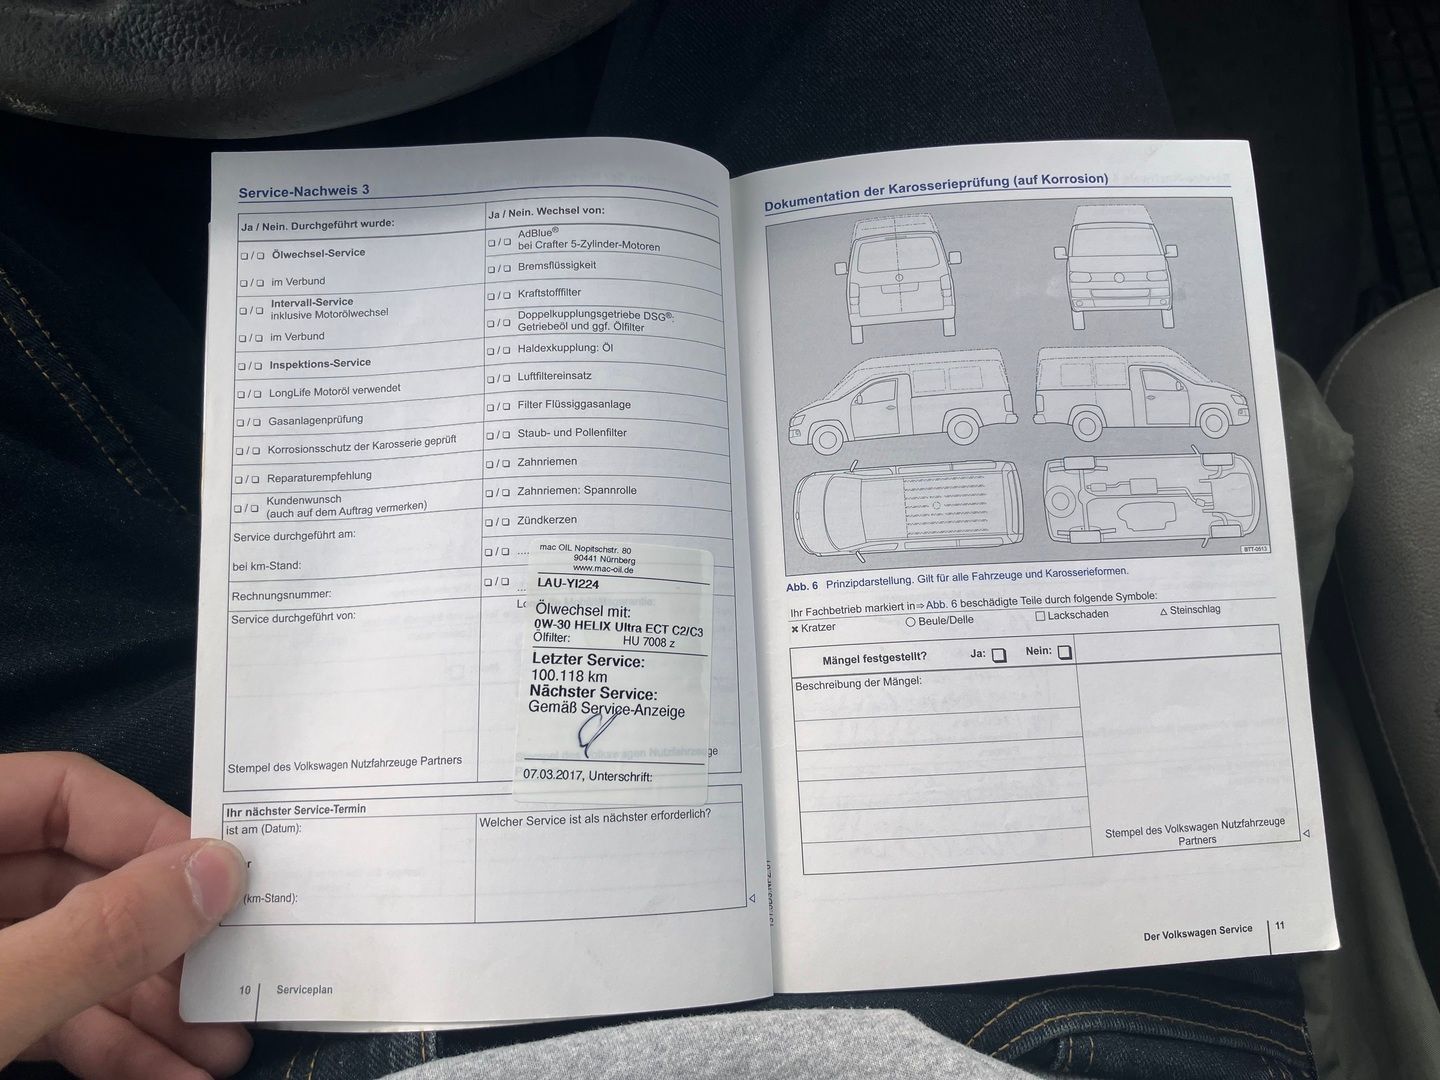 Service-Nachweis 3
Ja / Nein. Durchgeführt wurde:
❑ / ❑ Ölwechsel-Service
❑ / ❑ im Verbund
❑ / ❑ Intervall-Service
inklusive Motorölwechsel
❑ / ❑ im Verbund
❑ / ❑ Inspektions-Service
❑ / ❑ LongLife Motoröl verwendet
❑ / ❑ Gasanlagenprüfung
❑ / ❑ Korrosionsschutz der Karosserie geprüft
❑ / ❑ Reparaturempfehlung
❑ / ❑ Kundenwunsch
(auch auf dem Auftrag vermerken)
Service durchgeführt am:
bei km-Stand:
Rechnungsnummer:
Service durchgeführt von:
Stempel des Volkswagen Nutzfahrzeuge Partners
Ja / Nein. Wechsel von:
❑ / ❑ AdBlue®
bei Crafter 5-Zylinder-Motoren
❑ / ❑ Bremsflüssigkeit
❑ / ❑ Kraftstofffilter
❑ / ❑ Doppelkupplungsgetriebe DSG®:
Getriebeöl und ggf. Ölfilter
❑ / ❑ Haldexkupplung: Öl
❑ / ❑ Luftfiltereinsatz
❑ / ❑ Filter Flüssiggasanlage
❑ / ❑ Staub- und Pollenfilter
❑ / ❑ Zahnriemen
❑ / ❑ Zahnriemen: Spannrolle
❑ / ❑ Zündkerzen
❑ / ❑ ....
❑ / ❑ ....
mac OIL Nopitschstr. 80
90441 Nürnberg
www.mac-oil.de
LAU-YI224
Ölwechsel mit:
0W-30 HELIX Ultra ECT C2/C3
Ölfilter: HU 7008 z
Letzter Service:
100.118 km
Nächster Service:
Gemäß Service-Anzeige
07.03.2017, Unterschrift:
Stempel des Volkswagen Nutzfahrzeuge
Ihr nächster Service-Termin
ist am (Datum):
(km-Stand):
Welcher Service ist als nächster erforderlich?
10 Serviceplan
Dokumentation der Karosserieprüfung (auf Korrosion)
BTT-0513
Abb. 6 Prinzipdarstellung. Gilt für alle Fahrzeuge und Karosserieformen.
Ihr Fachbetrieb markiert in ⇒ Abb. 6 beschädigte Teile durch folgende Symbole:
✖ Kratzer ○ Beule/Delle □ Lackschaden △ Steinschlag
Mängel festgestellt? Ja: ❑ Nein: ❑
Beschreibung der Mängel:
Stempel des Volkswagen Nutzfahrzeuge
Partners
Der Volkswagen Service 11